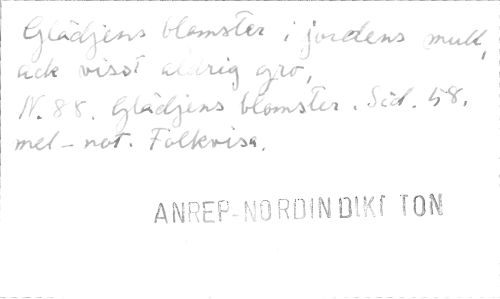 Glädjens blomster i jordens mull,
ack visst aldrig gro,
N. 88. Glädjens blomster. Sid. 58.
mel-not. Folkvisa.
ANREP-NORDIN DIKT TON